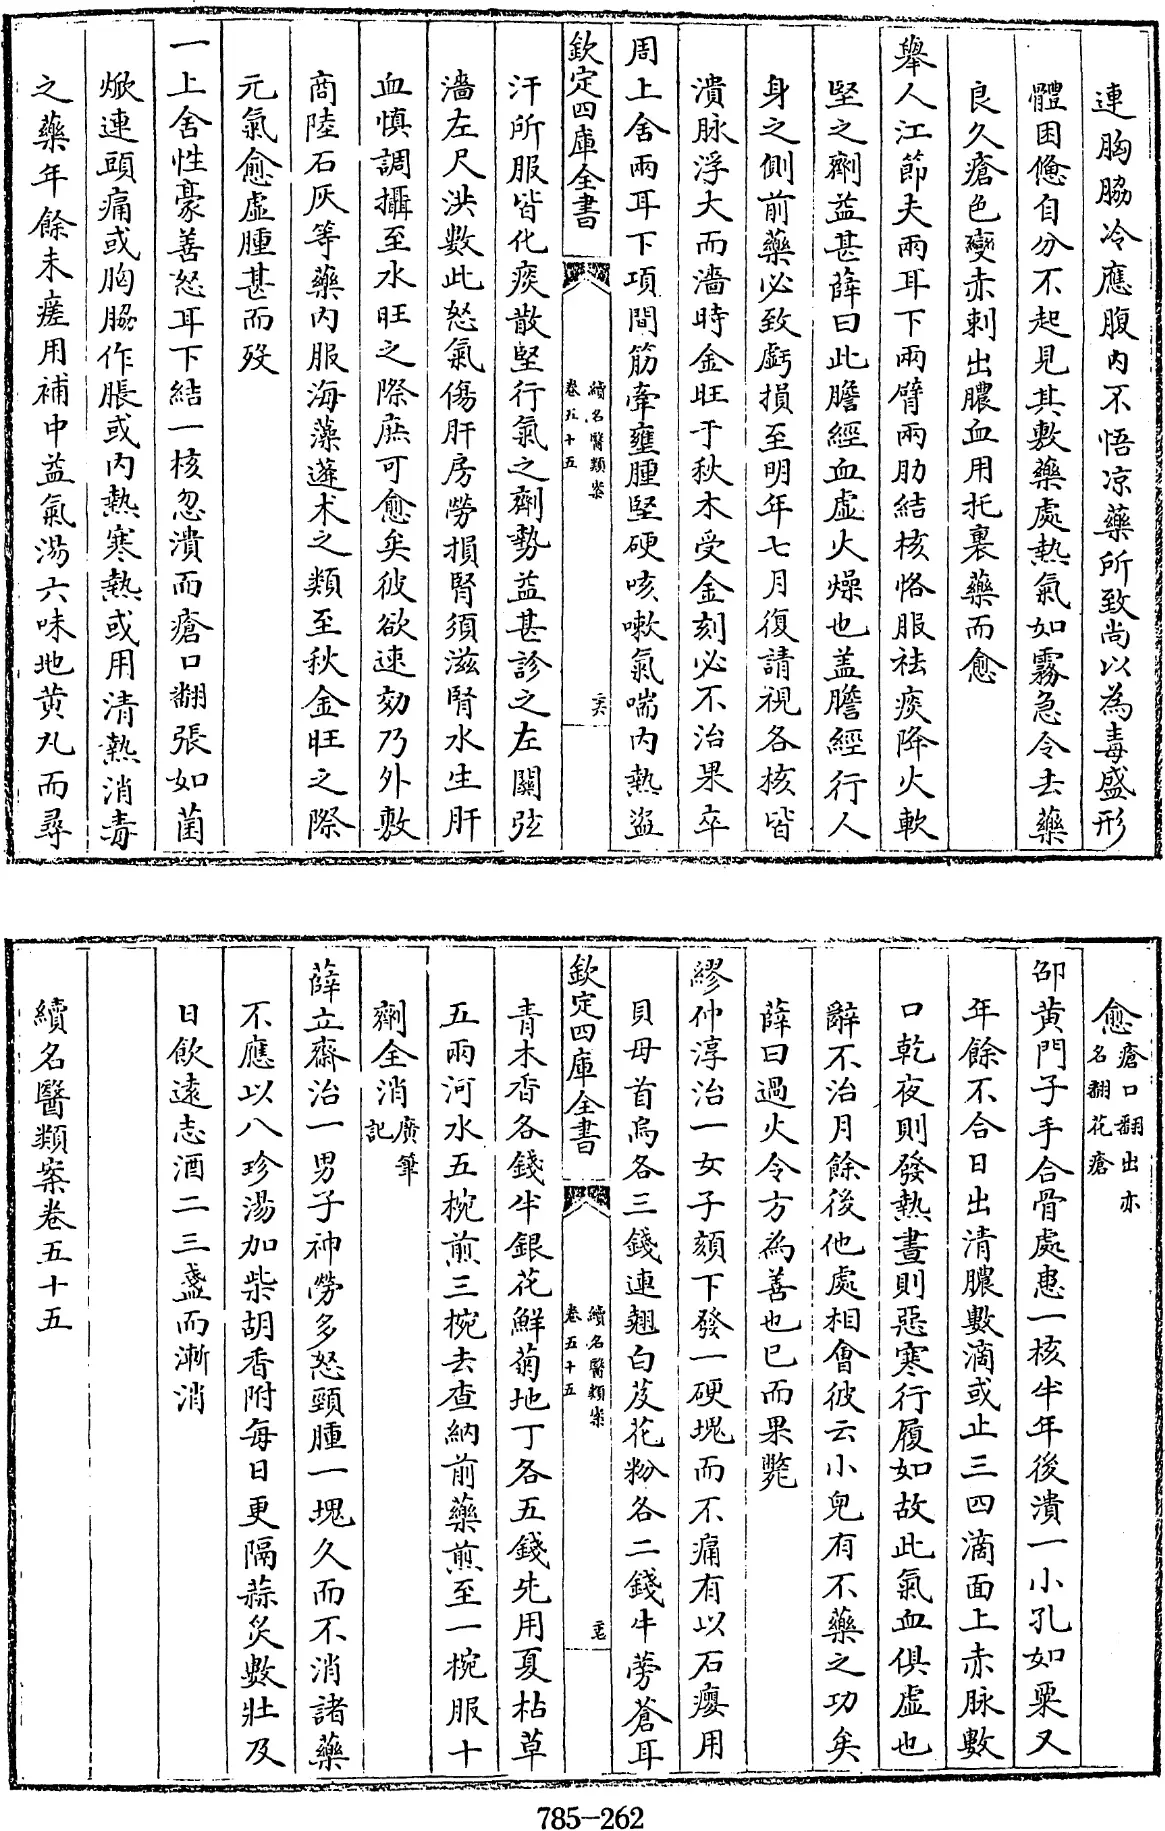 連胸脇冷應腹内不悟凉藥所致尚以為毒盛形
體困憊自分不起見其敷藥處熱氣如霧急令去藥
良久瘡色變赤刺出膿血用托裏藥而愈
舉人江節夫兩耳下兩臂兩肋結核恪服祛痰降火軟
堅之劑益甚薛曰此膽經血虛火燥也盖膽經行人
身之側前藥必致虧損至明年七月復請視各核皆
潰脉浮大而濇時金旺于秋木受金刻必不治果卒
周上舍兩耳下項間筋牽壅腫堅硬咳嗽氣喘内熱盜
欽定四庫全書
續名醫類案
卷五十五
二六
汗所服皆化痰散堅行氣之劑勢益甚診之左關弦
濇左尺洪數此怒氣傷肝房勞損腎須滋腎水生肝
血慎調攝至水旺之際庶可愈矣彼欲速効乃外敷
商陸石灰等藥内服海藻蓬术之類至秋金旺之際
元氣愈虛腫甚而殁
一上舍性豪善怒耳下結一核忽潰而瘡口翻張如菌
焮連頭痛或胸脇作脹或内熱寒熱或用清熱消毒
之藥年餘未瘥用補中益氣湯六味地黄丸而尋
愈瘡口翻出亦
名翻花瘡
邵黄門子手合骨處患一核半年後潰一小孔如粟又
年餘不合日出清膿數滴或止三四滴面上赤脉數
口乾夜則發熱晝則惡寒行履如故此氣血俱虛也
辭不治月餘後他處相會彼云小兒有不藥之功矣
薛曰過火令方為善也已而果斃
繆仲淳治一女子頦下發一硬塊而不痛有以石癭用
貝母首烏各三錢連翹白芨花粉各二錢牛蒡蒼耳
欽定四庫全書
續名醫類案
卷五十五
二七
青木香各錢半銀花鮮菊地丁各五錢先用夏枯草
五兩河水五椀煎三椀去查納前藥煎至一椀服十
劑全消廣筆
記
薛立齋治一男子神勞多怒頸腫一塊久而不消諸藥
不應以八珍湯加柴胡香附每日更隔蒜灸數壯及
日飲遠志酒二三盞而漸消
續名醫類案卷五十五
785-262